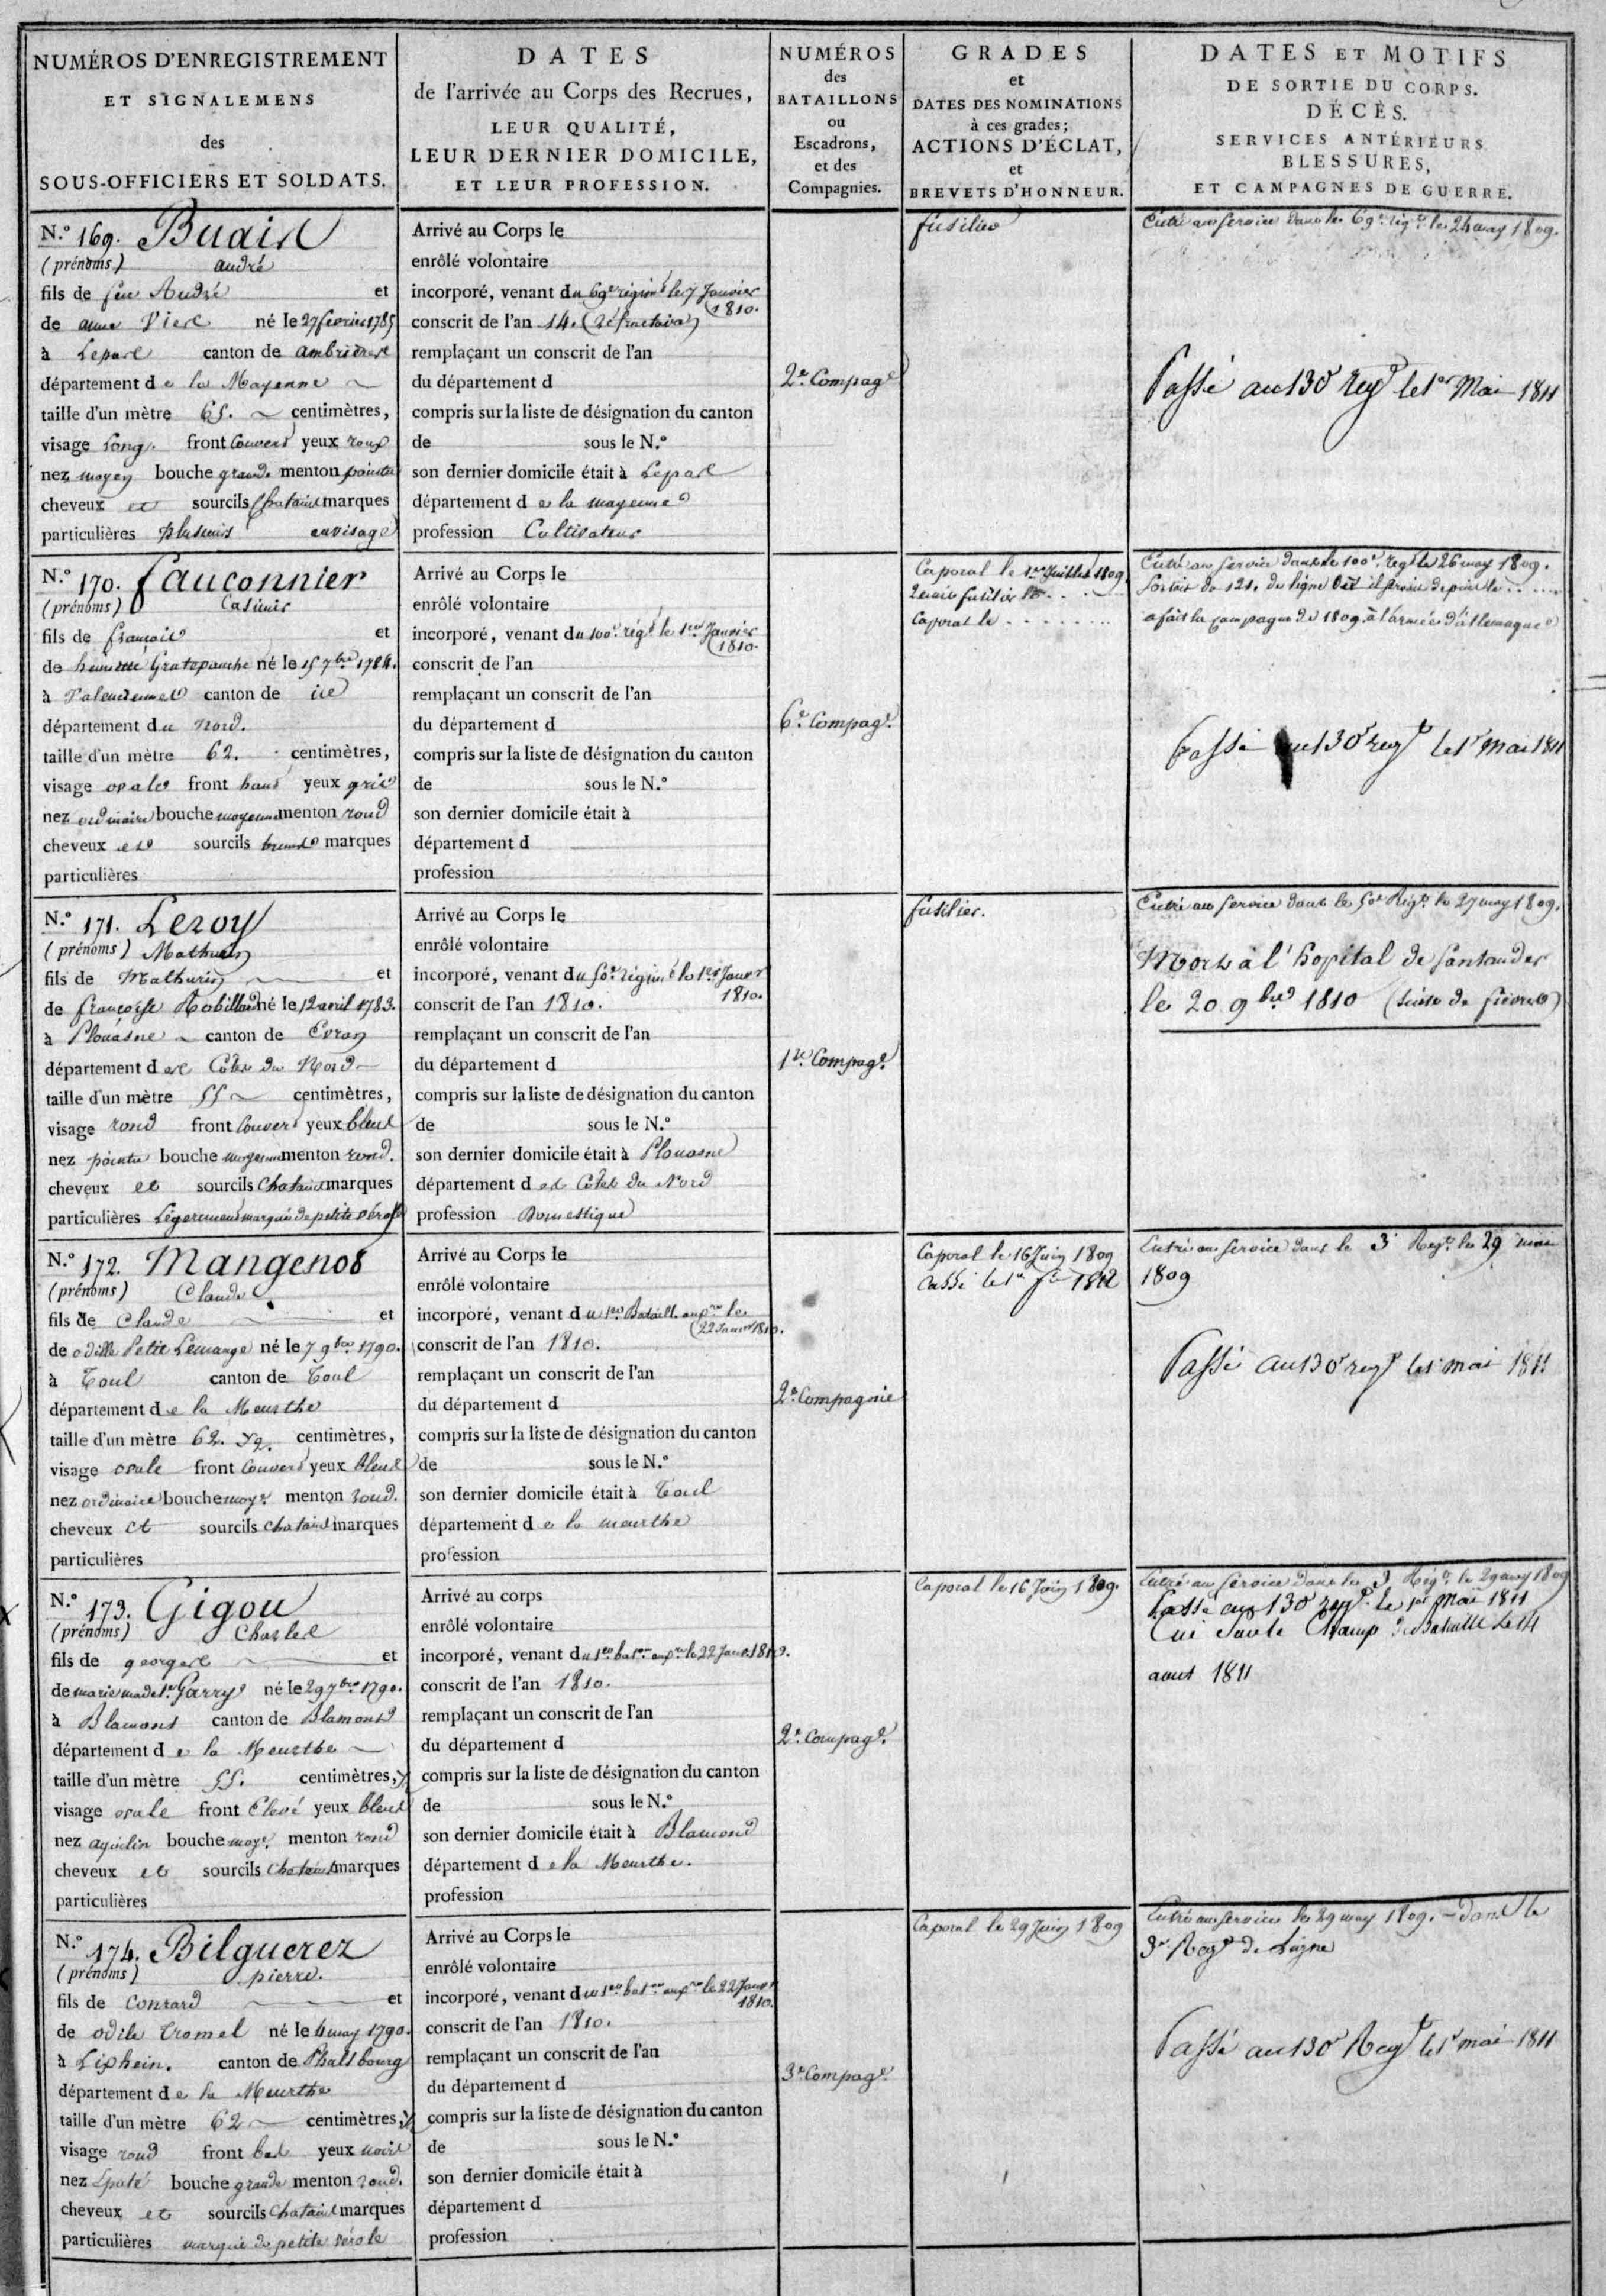 NUMÉROS D'ENREGISTREMENT
ET SIGNALEMENS
des
SOUS-OFFICIERS ET SOLDATS.
DATES
de l'arrivée au Corps des Recrues,
LEUR QUALITÉ,
LEUR DERNIER DOMICILE,
ET LEUR PROFESSION.
NUMÉROS
des
BATAILLONS
ou
Escadrons,
et des
Compagnies.
GRADES
et
DATES DES NOMINATIONS
à ces grades;
ACTIONS D'ÉCLAT,
et
BREVETS D'HONNEUR.
DATES ET MOTIFS
DE SORTIE DU CORPS.
DÉCÈS.
SERVICES ANTÉRIEURS
BLESSURES,
ET CAMPAGNES DE GUERRE.
N.º 169.
(prénoms) andré
fils de feu André et
de anne né le 27 fevrier 1785
à canton de ambrieres
département de la Mayenne
taille d'un mètre 65. centimètres,
visage Long. front Couvert yeux roux
nez moyen bouche grande menton pointu
cheveux et sourcils Chatains marques
particulières plusieurs au visage
Arrivé au Corps le
enrôlé volontaire
incorporé, venant du 69e régimt le 7 Janvier
1810.
conscrit de l'an 14. (réfractaire)
remplaçant un conscrit de l'an
du département d
compris sur la liste de désignation du canton
de sous le N.º
son dernier domicile était à
département de la mayenne
profession Cultivateur
2e Compage
fusilier
Entré au service dans le 69e régt le 24 may 1809.
Passé au 130e Regt le 1er Mai 1811
N.º 170. Fauconnier
(prénoms) Casimir
fils de françois et
de né le 15 7bre 1784.
à Valenciennes canton de
département du Nord.
taille d'un mètre 62. centimètres,
visage ovale front haut yeux gris
nez ordinaire bouche moyenne menton rond
cheveux et sourcils bruns marques
particulières
Arrivé au Corps le
enrôlé volontaire
incorporé, venant du 100e régt le 1er Janvier
1810.
conscrit de l'an
remplaçant un conscrit de l'an
du département d
compris sur la liste de désignation du canton
de sous le N.º
son dernier domicile était à
département d
profession
6e Compage.
Caporal le 1er Juillet 1809.
fusilier le . . .
Caporal le . . . . . . . .
Entré au service dans le 100e. regt le 26 may 1809.
Sortait du 121. de ligne il servait depuis le . . . .
a fait la campagne de 1809. à l'armée d'allemagne
Passé au 130e regt le 1er mai 1811
N.º 171. Leroy
(prénoms) Mathurin
fils de Mathurin et
de françoise Robillard né le 12 avril 1783.
à Plouasne canton de Evran
département des Côtes du Nord
taille d'un mètre 55 centimètres,
visage rond front Couvert yeux bleus
nez pointu bouche moyenne menton rond.
cheveux et sourcils Chatains marques
particulières Légerement marqué de petite vérole
Arrivé au Corps le
enrôlé volontaire
incorporé, venant du 50e régimt le 1er Janvr
1810.
conscrit de l'an 1810.
remplaçant un conscrit de l'an
du département d
compris sur la liste de désignation du canton
de sous le N.º
son dernier domicile était à Plouasne
département des Côtes du Nord
profession Domestique
1re Compage.
fusilier.
Entré au service dans le 50e Regt. le 27 may 1809.
Mort à l'hopital de Santander
le 20 9bre 1810 (Suite de fievres)
N.º 172. Mangenot
(prénoms) Claude
fils de Claude et
de odille Petit Lemange né le 7 9bre 1790.
à Toul canton de Toul
département de la Meurthe
taille d'un mètre 62. centimètres,
visage ovale front Couvert yeux bleus
nez ordinaire bouche moye. menton rond.
cheveux et sourcils chatains marques
particulières
Arrivé au Corps le
enrôlé volontaire
incorporé, venant du 1er Bataill. le
22 Janvr 1810.
conscrit de l'an 1810.
remplaçant un conscrit de l'an
du département d
compris sur la liste de désignation du canton
de sous le N.º
son dernier domicile était à Toul
département de la meurthe
profession
2e Compagnie
Caporal le 16 Juin 1809
Cassé le 1er
Entré au service dans le 3e Regt. le 29 mai
1809
Passé au 130e regt le 1er mai 1811
N.º 173. Gigou
(prénoms) Charles
fils de georges et
de marie madelne. Garry né le 29 7bre 1790.
à Blamont canton de Blamont
département de la Meurthe
taille d'un mètre 55. centimètres,
visage ovale front Elevé yeux bleus
nez aquilin bouche moye. menton rond
cheveux et sourcils Chatains marques
particulières
Arrivé au corps
enrôlé volontaire
incorporé, venant du 1er baton. le 22 Janv. 1810.
conscrit de l'an 1810.
remplaçant un conscrit de l'an
du département d
compris sur la liste de désignation du canton
de sous le N.º
son dernier domicile était à Blamond
département de la Meurthe.
profession
2e Compage.
Caporal le 16 Juin 1809.
Entré au service dans le 3e Régt. le 29 may 1809
Passé au 130e regt. le 1er Mai 1811
Tué sur le Champ de Bataille le 14
aout 1811
N.º 174. Bilguerez
(prénoms) pierre.
fils de Conrard et
de odile Tromel né le 4 may 1790.
à Lixhein. canton de Phalsbourg
département de la Meurthe
taille d'un mètre 62 centimètres,
visage rond front bas yeux noirs
nez Epaté bouche grande menton rond.
cheveux et sourcils Chatains marques
particulières marqué de petite vérole
Arrivé au Corps le
enrôlé volontaire
incorporé, venant du 1er baton le 22 Janvr
1810.
conscrit de l'an 1810.
remplaçant un conscrit de l'an
du département d
compris sur la liste de désignation du canton
de sous le N.º
son dernier domicile était à
département d
profession
3e Compage
Caporal le 29 Juin 1809
Entré au service le 29 may 1809. dans le
3e Regt de Ligne
Passé au 130e Regt le 1er mai 1811